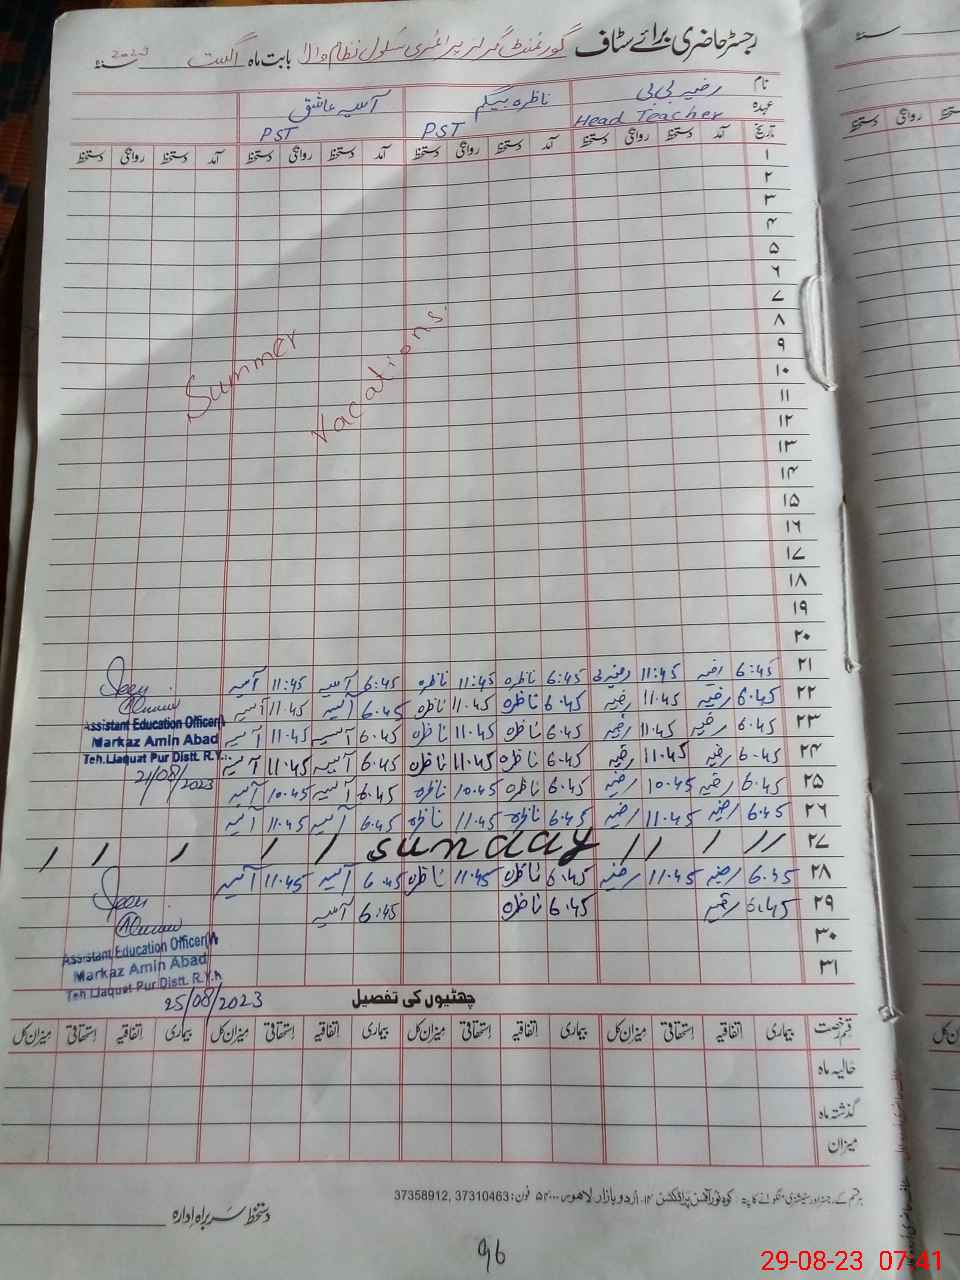 رجسٹر حاضری برائے سٹاف گورنمنٹ گرلز پرائمری سکول نظام والا بابت ماہ اگست 2023 سنہ
نام رضیہ بی بی ناظرہ بیگم آسیہ عاشق
عہدہ Head Teacher PST PST
تاریخ آمد دستخط روانگی دستخط آمد دستخط روانگی دستخط آمد دستخط روانگی دستخط آمد دستخط روانگی دستخط
۱
۲
۳
۴
۵
۶
۷
۸
۹
۱۰
۱۱
۱۲
۱۳
۱۴
۱۵
۱۶
۱۷
۱۸
۱۹
۲۰
Summer
Vacations.
۲۱ 6:45 رضیہ 11:45 رضیہ 6:45 ناظرہ 11:45 ناظرہ 6:45 آسیہ 11:45 آسیہ
۲۲ 6.45 رضیہ 11.45 رضیہ 6.45 ناظرہ 11.45 ناظرہ 6.45 آسیہ 11.45 آسیہ
۲۳ 6.45 رضیہ 11.45 رضیہ 6.45 ناظرہ 11.45 ناظرہ 6.45 آسیہ 11.45 آسیہ
۲۴ 6.45 رضیہ 11.45 رضیہ 6.45 ناظرہ 11.45 ناظرہ 6.45 آسیہ 11.45 آسیہ
۲۵ 6.45 رضیہ 10.45 رضیہ 6.45 ناظرہ 10.45 ناظرہ 6.45 آسیہ 10.45 آسیہ
۲۶ 6.45 رضیہ 11.45 رضیہ 6.45 ناظرہ 11.45 ناظرہ 6.45 آسیہ 11.45 آسیہ
۲۷ sunday
۲۸ 6.45 رضیہ 11.45 رضیہ 6.45 ناظرہ 11.45 ناظرہ 6.45 آسیہ 11.45 آسیہ
۲۹ 6.45 رضیہ 6.45 ناظرہ 6:45 آسیہ
۳۰
۳۱
Assistant Education Officer
Markaz Amin Abad
Teh. Liaquat Pur Distt. R.Y.
21/08/2023
Assistant Education Officer
Markaz Amin Abad
Teh Liaquat Pur Distt. R.Y.K
25/08/2023
چھٹیوں کی تفصیل
قسم رخصت بیماری اتفاقیہ استحقاقی میزان کل بیماری اتفاقیہ استحقاقی میزان کل بیماری اتفاقیہ استحقاقی میزان کل بیماری اتفاقیہ استحقاقی میزان کل
حالیہ ماہ
گذشتہ ماہ
میزان
ہر قسم کے رجسٹر اور سٹیشنری منگوانے کا پتہ: کوہ نور آفسٹ پرافکشن ۱۴۔ اردو بازار لاہور ۵۴۰۰۰ فون: 37310463, 37358912
دستخط سربراہ ادارہ
96
29-08-23 07:41
سنہ
روانگی دستخط